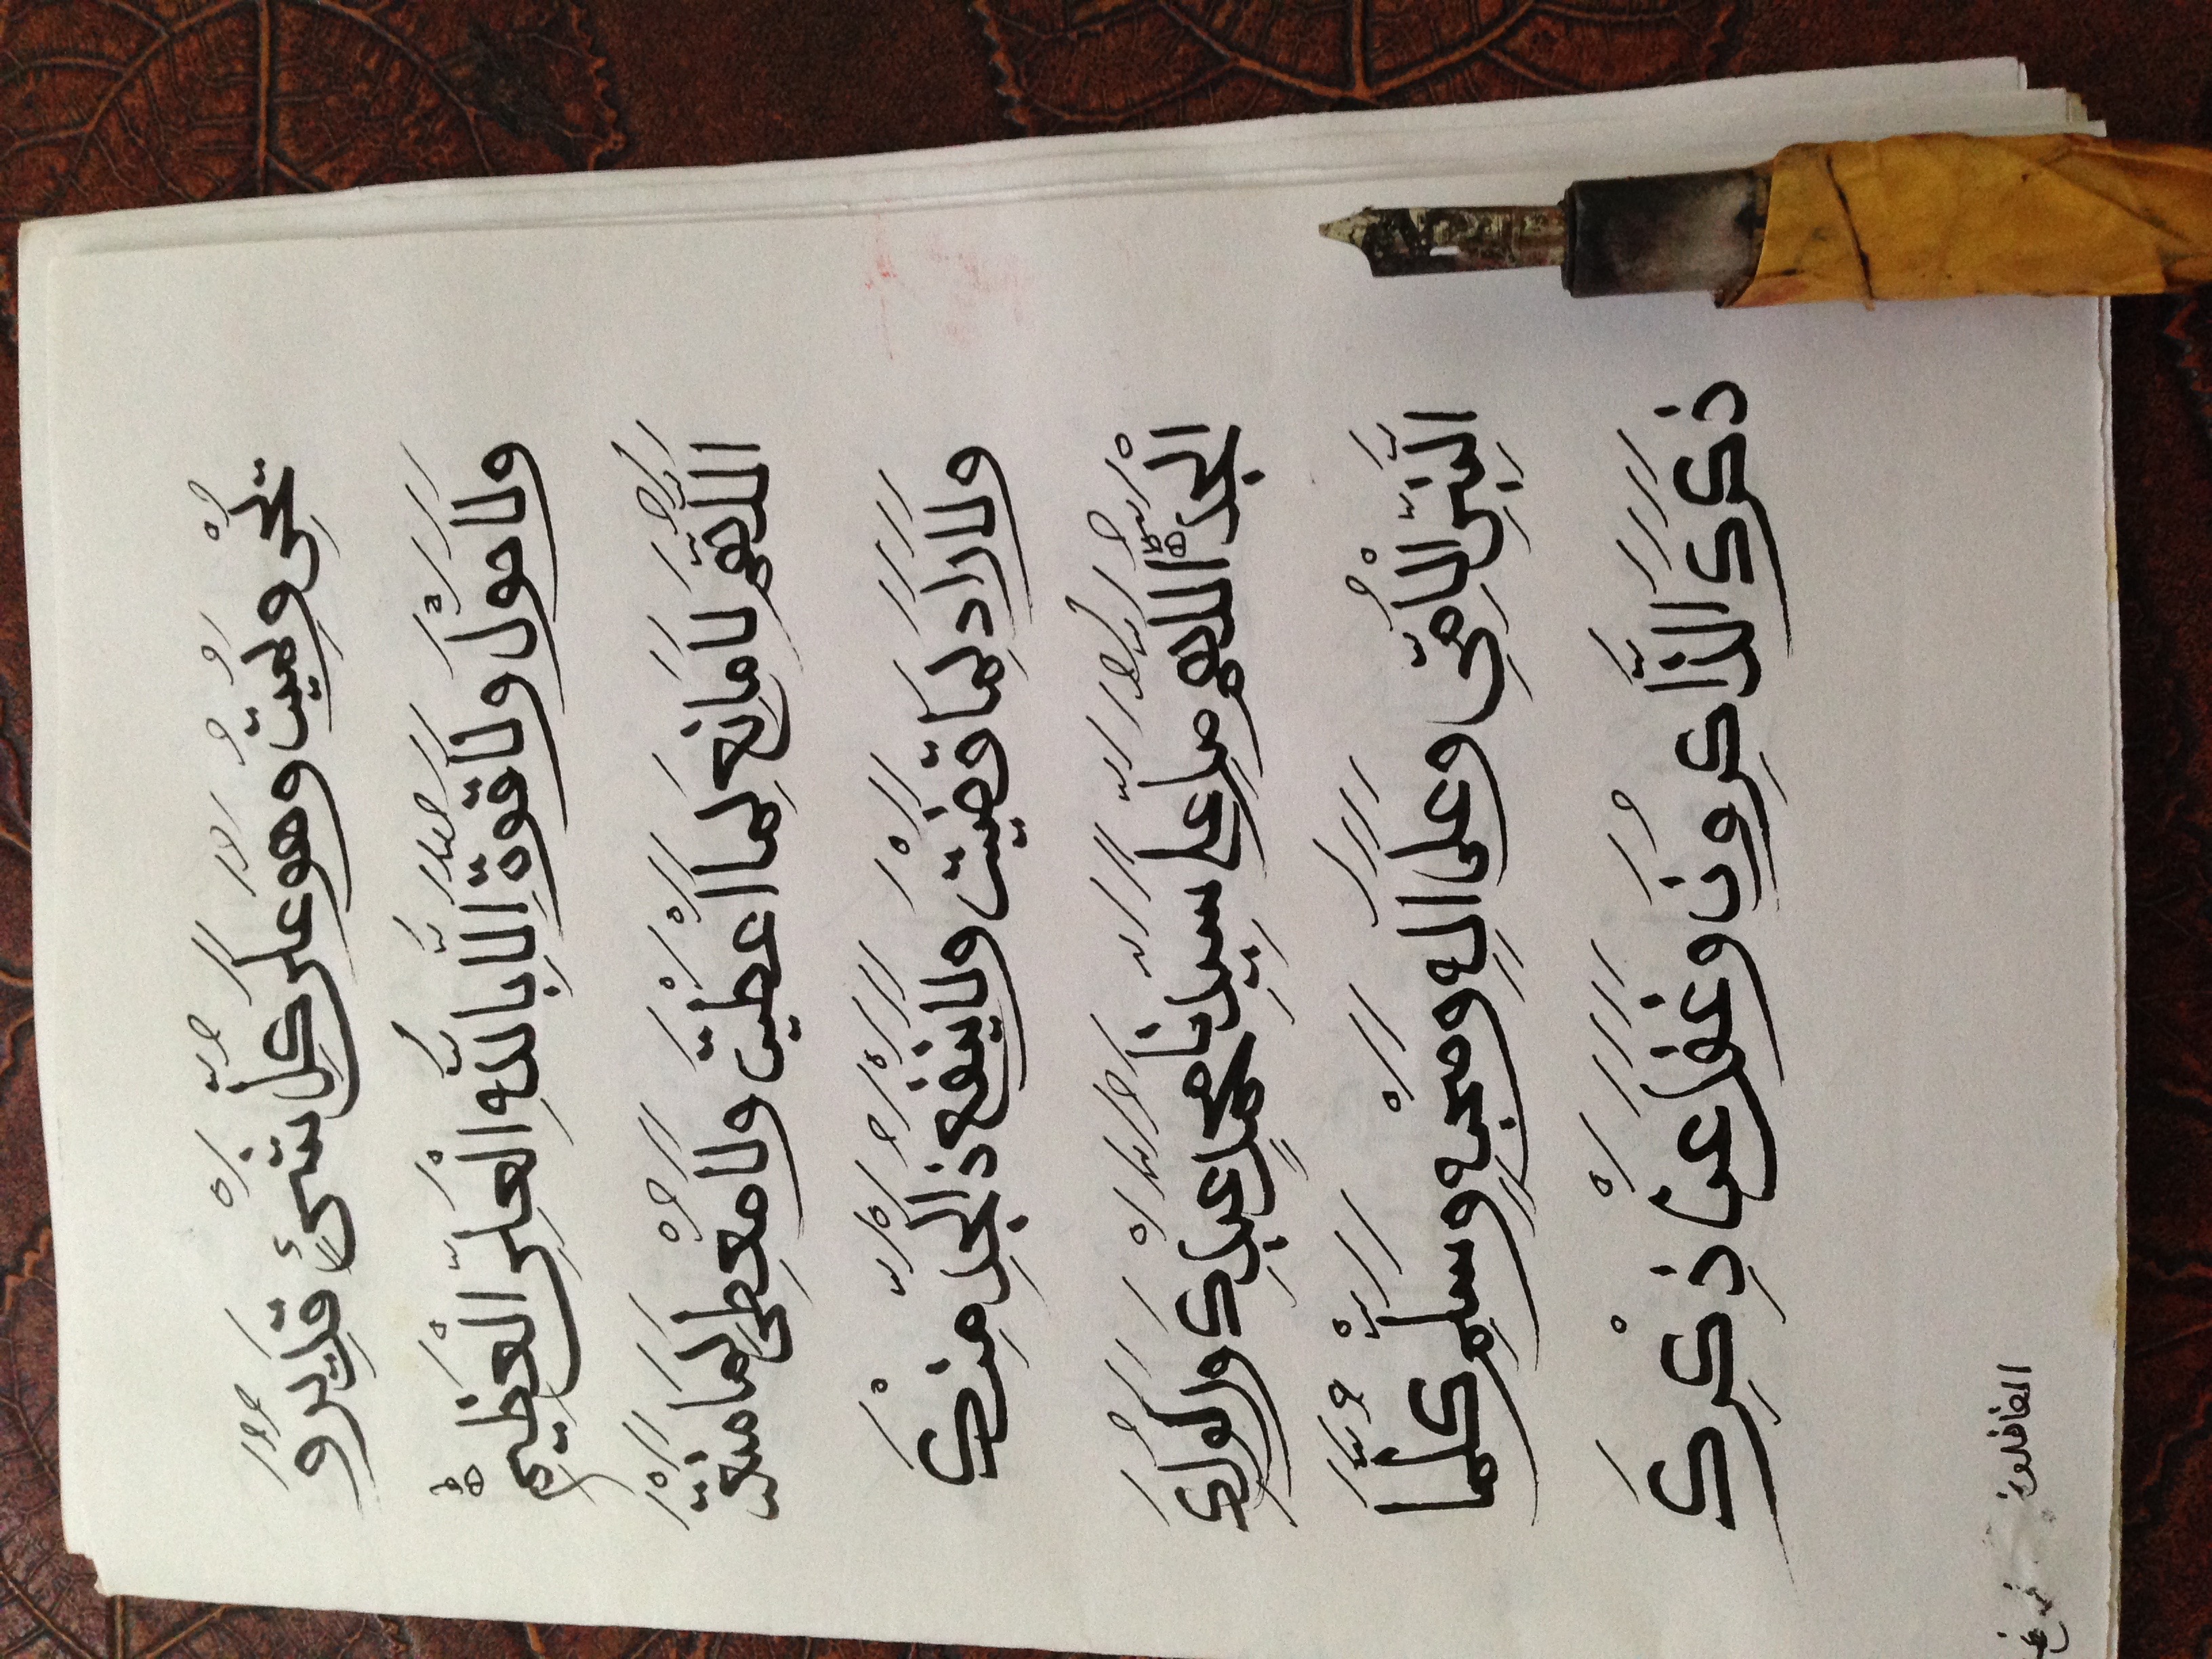 يُحْيِ وَيُمِيتُ وَهُوَ عَلَى كُلِّ شَيْئٍ قَدِيرٌ وَ
وَلَا حَوْلَ وَلَا قُوَّةَ اِلَّا بِاللّٰهِ الْعَلِيِّ الْعَظِيمِ
اَللّٰهُمَّ لَا مَانِعَ لِمَا اَعْطَيْتَ وَلَا مُعْطِيَ لِمَا مَنَعْتَ
وَلَا رَادَ لِمَا قَضَيْتَ وَلَا يَنْفَعُ ذَ الْجَدِّ مِنْكَ
الْجَدُّ اَللّٰهُمَّ صَلِّ عَلَى سَيِّدِنَا مُحَمَّدٍ عَبْدِكَ وَرَسُولِكَ
النَّبِيِّ الْاُمِّيِّ وَعَلَى اٰلِهِ وَصَحْبِهِ وَسَلِّمْ كُلَّمَا
ذَكَرَكَ الذَّاكِرُونَ وَغَفَلَ عَنْ ذِكْرِكَ
الغافلون